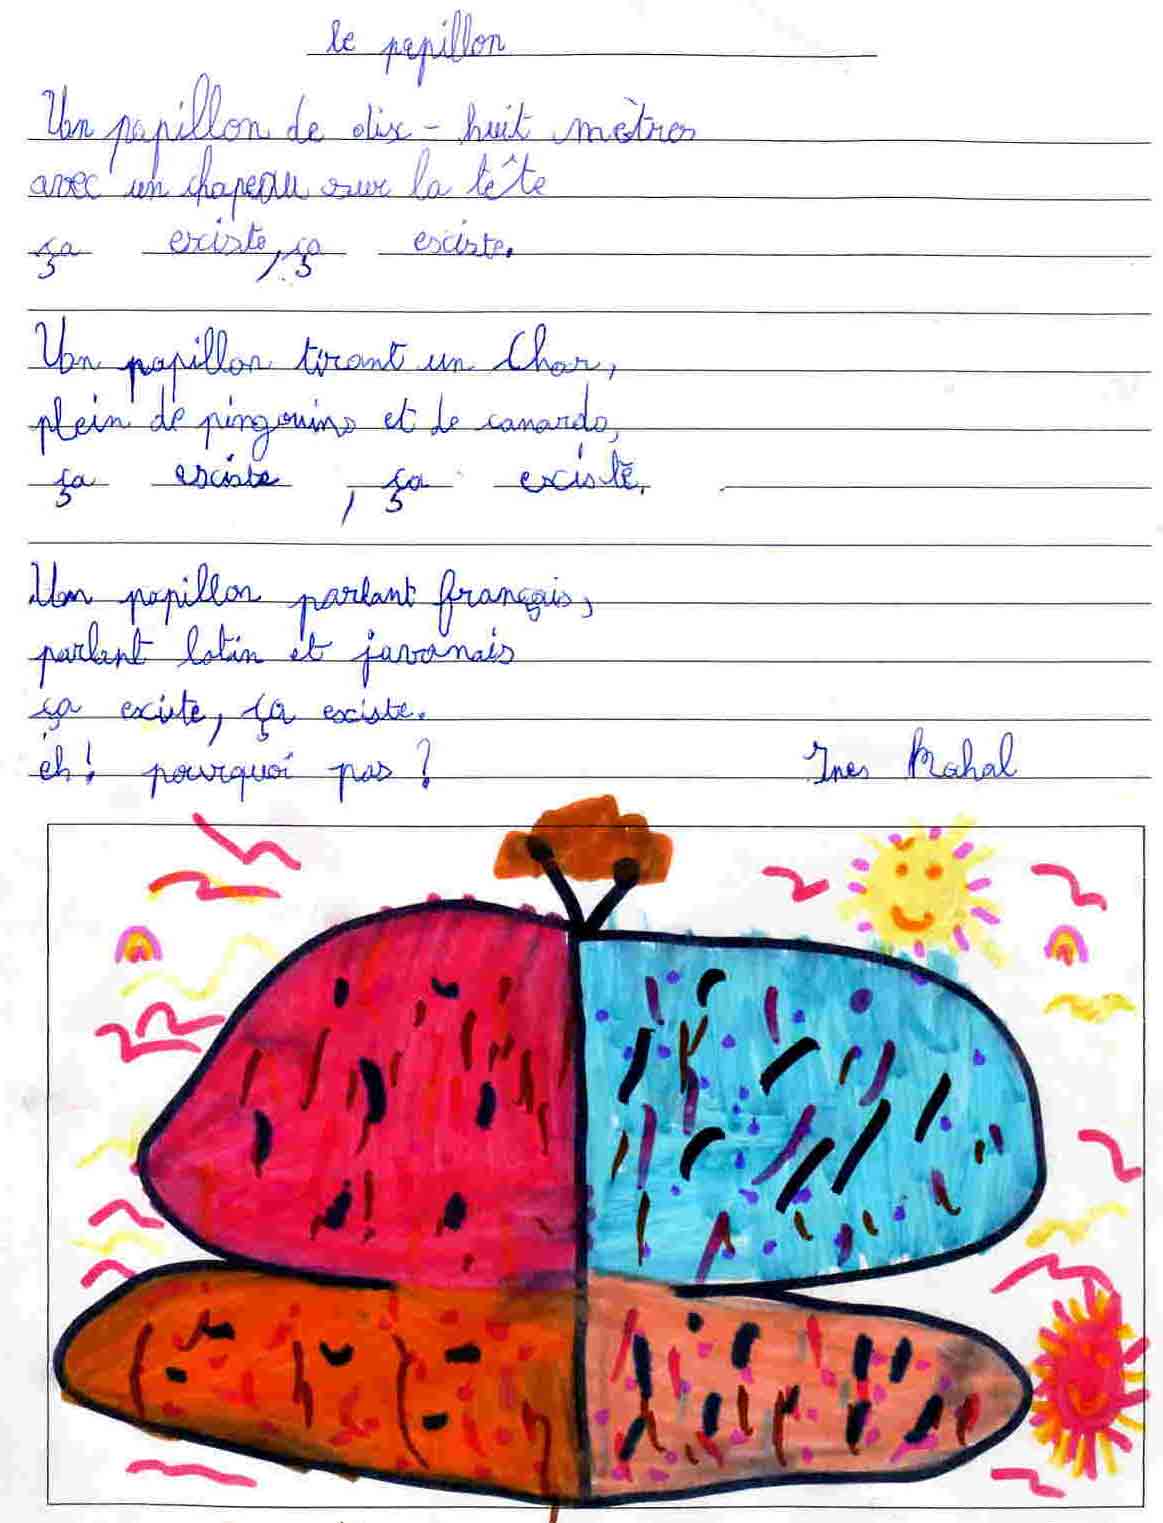 le papillon
Un papillon de dix-huit mètres
avec un chapeau sur la tête
ça existe, ça esciste.
Un papillon tirant un Char,
plein de pingouins et de canards,
ça esciste, ça existe.
Un papillon parlant français,
parlant latin et javanais
ça exciste, ça esciste.
eh! pourquoi pas?
Ines